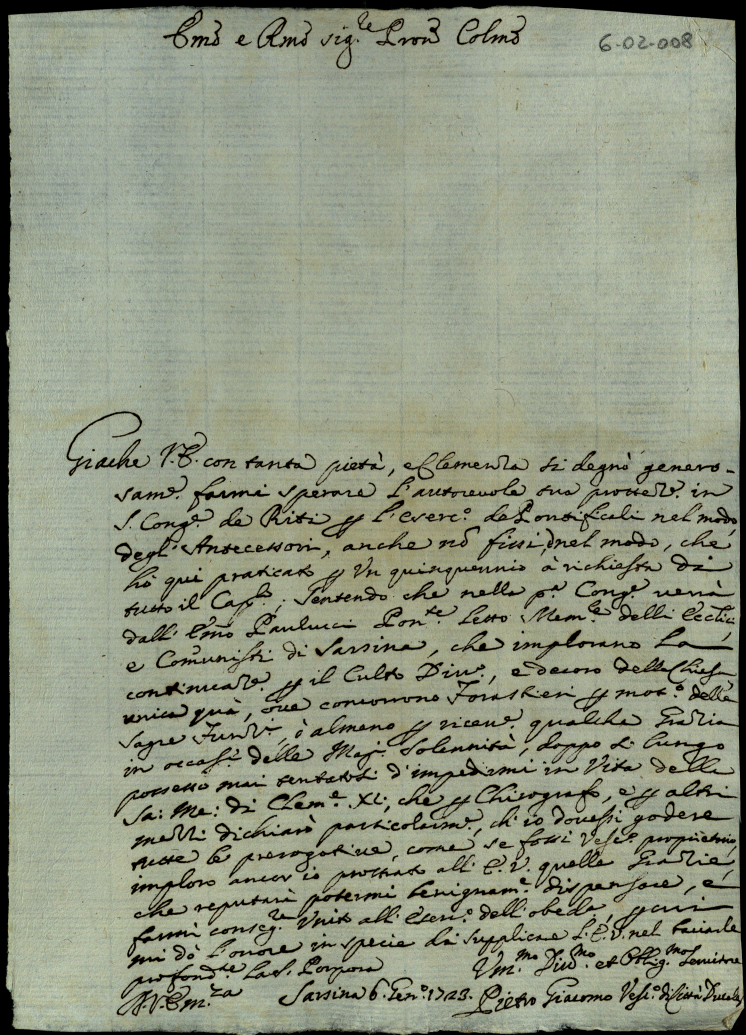 Emō e Rmō sig.re Prōn Colmō
6-02-008
Giache V.E. con tanta pietà, e Clemenza si degnò genero-
sam.e farmi sperare l'autorevole sua protez.e in
S. Cong.e de Riti p l'eserc.o de Pontificali nel modo
degl'Antecessori, anche nō fissi, nel modo, che
hò qui praticato p Un quinquennio à richiesta di
tutto il Cap.lo; Sentendo che nella p.a Cong.e verrà
dall'Emō Paulucci Pon.te Letto Mem.le delli Eccl.ci
e Comunisti di Sarsina, che implorano La
continuaz.e p il Culto Div.o, e decoro della Chiesa
unica quà, ove concorrono Forastieri p mot.o delle
Sagre Funz.i, ò almeno p ricev.e qualche Grazia
in occas.i delle Mag.i Solennità, doppo sì lungo
possesso mai tentatosi d'impedirmi in Vita della
Sa: Me: di Clem.e XI, che p Chirografo, e p altri
mezzi dichiarò particolarm.e, ch'io dovessi godere
tutte le prerogative, come se fossi Vesc.o proprietario,
imploro ancor io prostrato all'E.V. quelle Grazie,
che reputarà potermi benignam.e dispensare, e
farmi conseg.re Unito all'eserc.o dell'obeda, p cui
mi dò l'onore in specie di supplicare l'E.V. nel baciarle
profond.te La S. Porpora
D.V.Em.za
Um.mo Div.mo et Oblig.mo Servitore
Sarsina 6. Gen.o 1723. Pietro Giacomo Vesc.o di Città Ducale